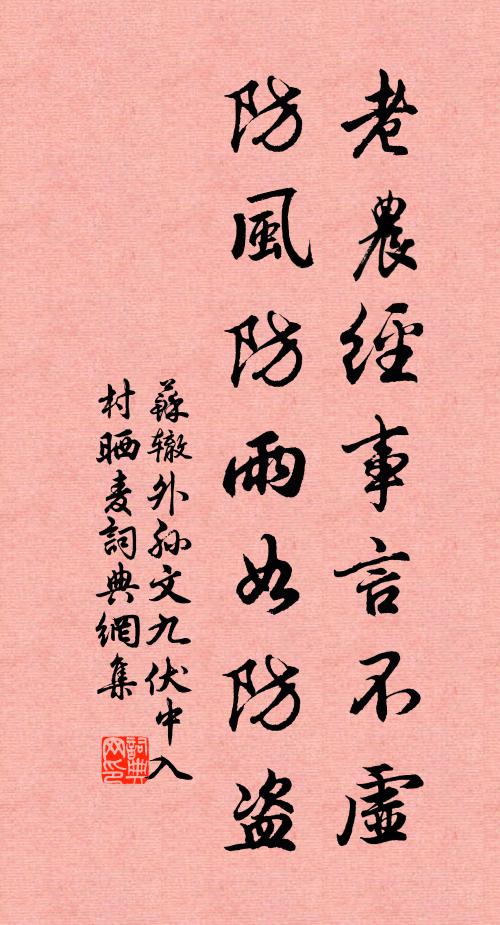 老農經事言不虛
防風防雨如防盜
蘇辙外孙文九伏中入
村晒麦詞典網集
詞典
网印